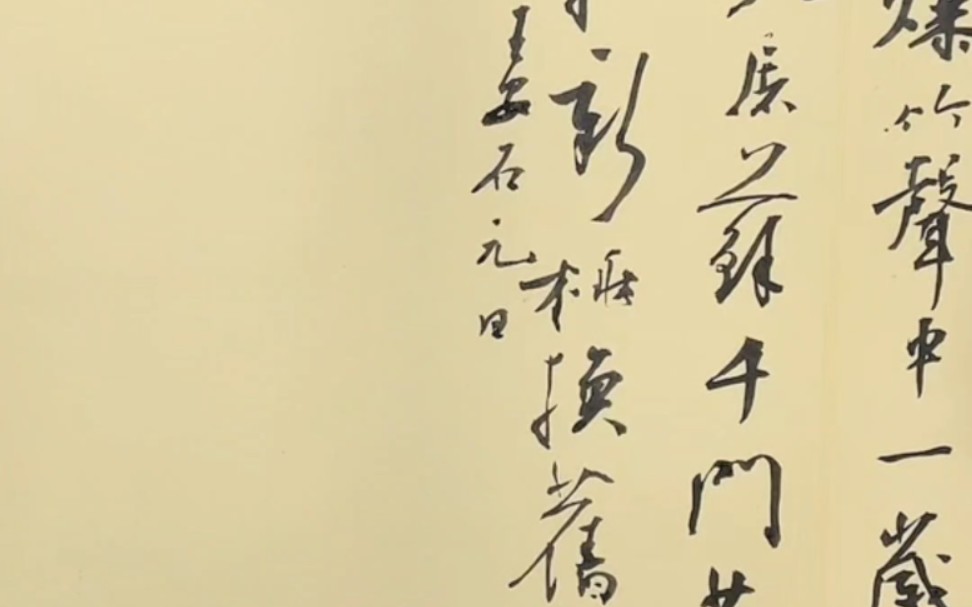 爆竹聲中一歲
屠蘇千門
新桃換舊
王安石元日